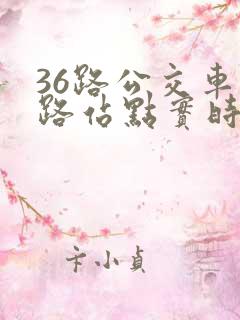 36路公交車
路佔點實時
卡小貞